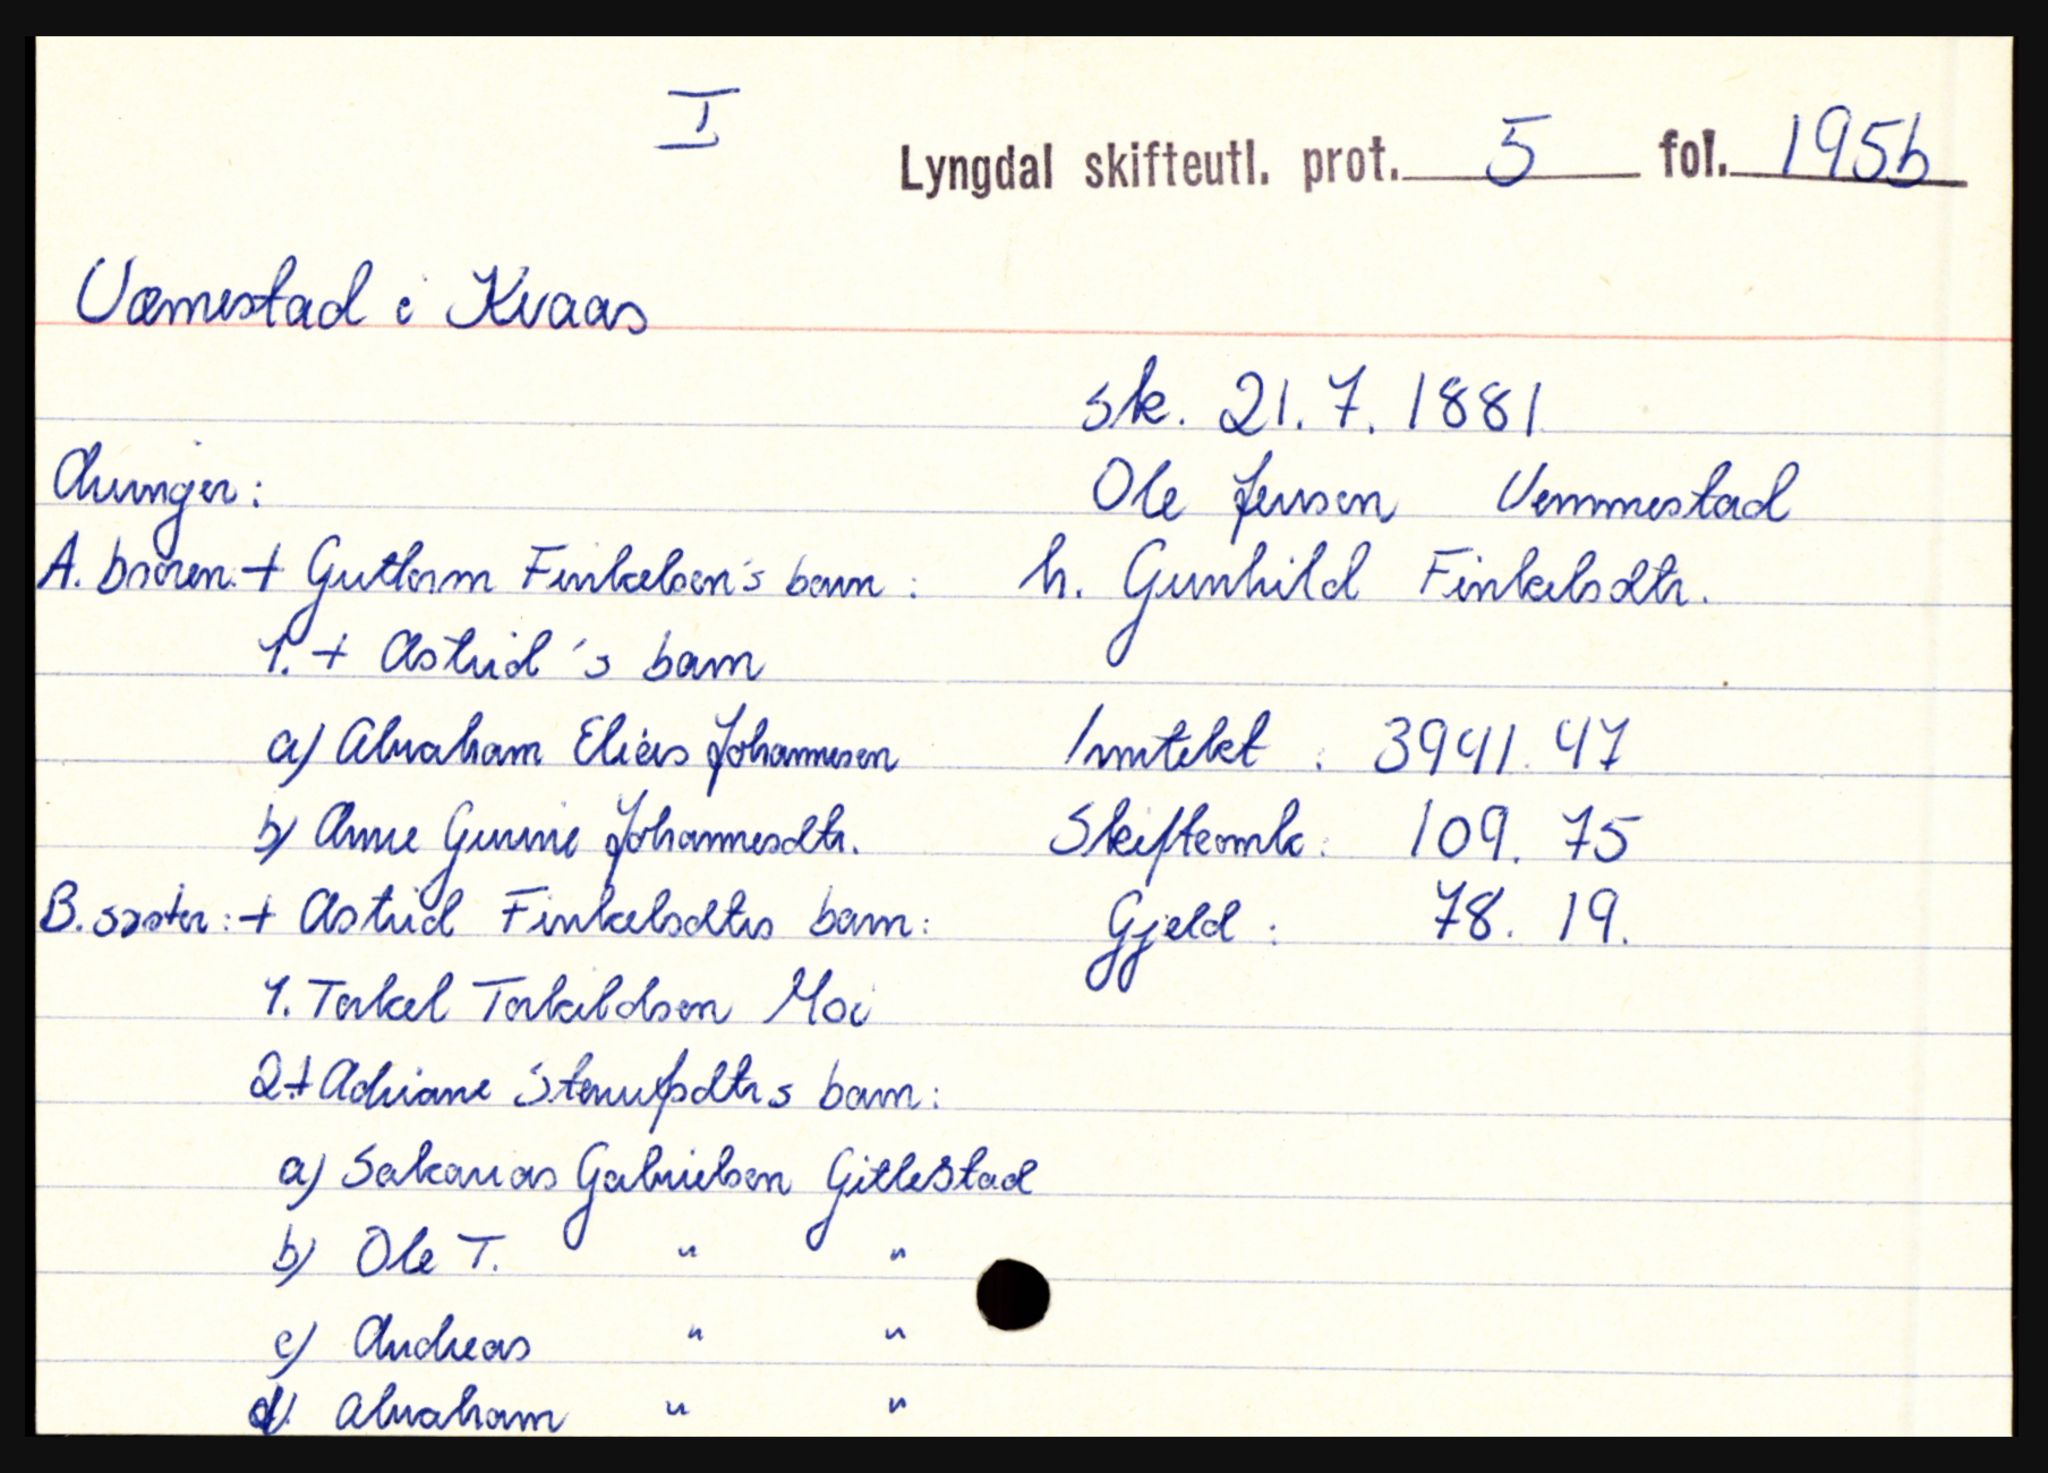 I
Lyngdal skifteutl. prot. 5 fol. 195b
Væmestad i Kvaas
sk. 21.7.1881
Arvinger:
Ole Jensen Vemmestad
A. broren: + Guttorm Finkelsen's barn:
h. Gunhild Finkelsdtr.
1. + Astrid's barn
a) Abraham Elias Johannesen
Inntekt: 3941.47
b) Anne Gurine Johannesdtr.
Skifteomk: 109.75
B. søster: + Astrid Finkelsdtrs barn:
Gjeld: 78.19.
1. Torkel Torkildsen Moi
2+ Adriane Stenufsdtrs barn:
a) Sakarias Gabrielsen Gitlestad
b) Ole T. " "
c) Andreas " "
d) Abraham " "